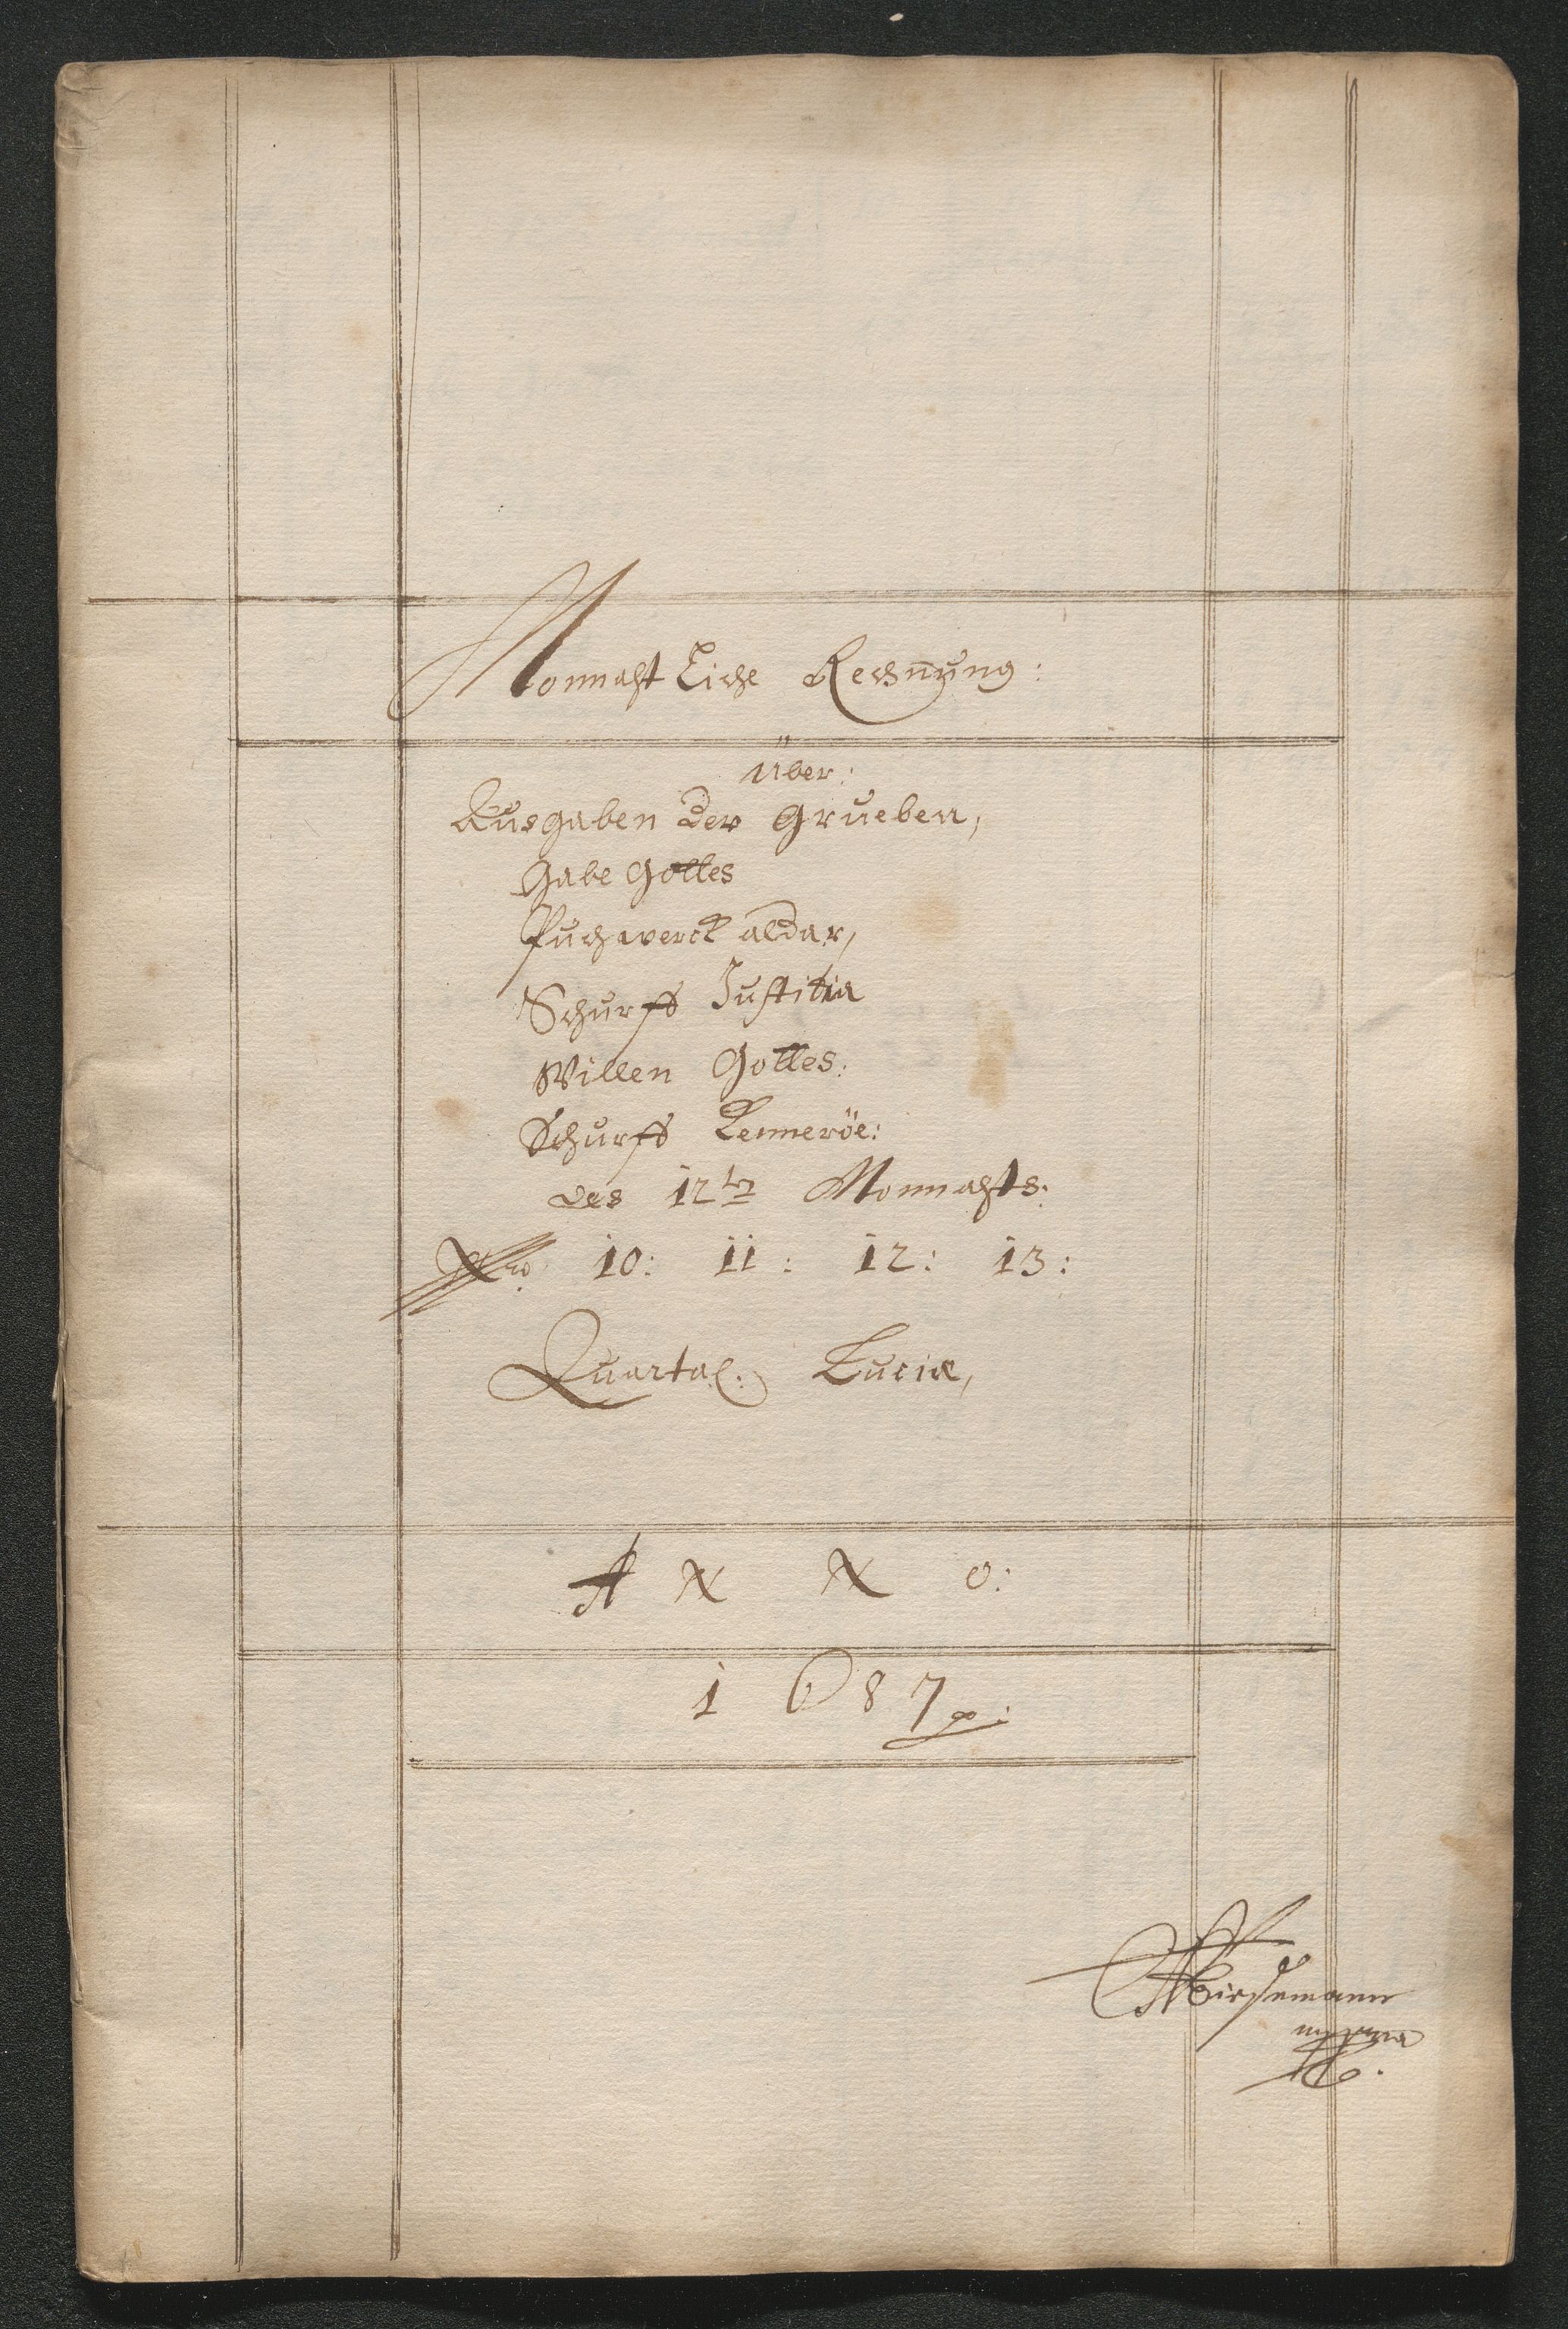 Monnaht Liche Rechnung:
über:
Ausgaben der Grueben,
Gabe Gottes
Puchwerck aldar,
Schurff Justitia
Willen Gottes:
Schurff Lenneröe:
des 12tn Monnahts:
Nro 10: 11: 12: 13:
Quartal: Luciæ,
A N N o:
1687
mppria